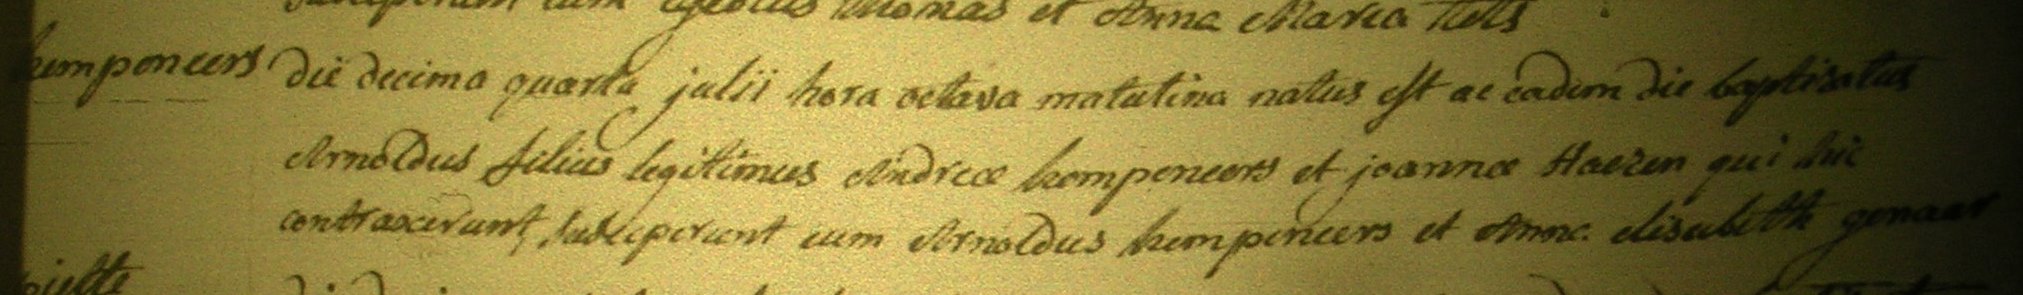 susceperunt eum Thomas et Anna Maria
kemponeers die decima quarta julii hora octava matutina natus est ac eadem die baptisatus
Arnoldus filius legitimus Andreæ kempeneers et joannæ Haezen qui hic
contraxerunt, susceperunt eum Arnoldus kempeneers et Anna elisabeth genaer